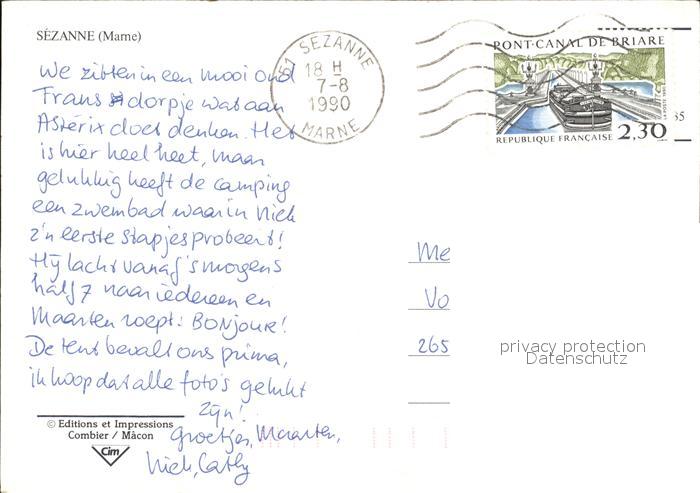 SÉZANNE (Marne)
We zitten in een mooi oud
Frans dorpje wat aan
Astérix doet denken. Het
is hier heel heet, maar
gelukkig heeft de camping
een zwembad waarin Niek
z'n eerste stapjes probeert!
Hij lacht vanaf 's morgens
half 7 naar iedereen en
Maarten roept: BONJOUR!
De tent bevalt ons prima,
ik hoop dat alle foto's gelukt
zijn!
Groetjes, Maarten,
Niek, Cathy
© Editions et Impressions
Combier / Mâcon
Cim
51 SEZANNE
18 H
7-8
1990
MARNE
PONT-CANAL DE BRIARE
REPUBLIQUE FRANÇAISE 2,30
LA POSTE 1990
35
Me
Vo
265
privacy protection
Datenschutz